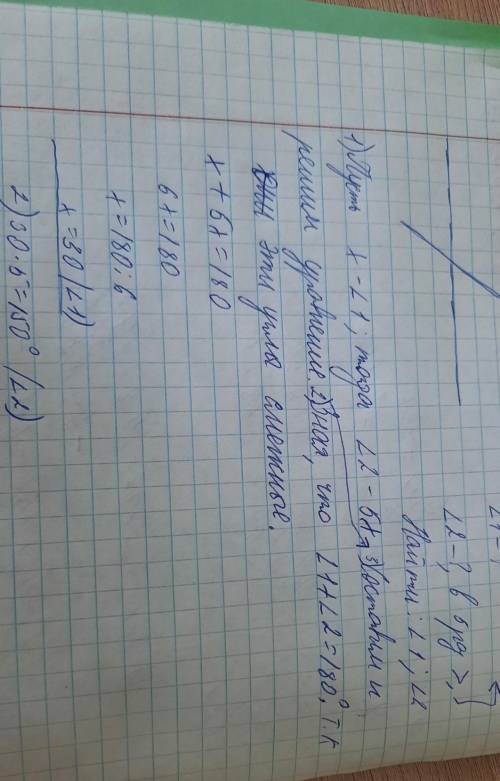 ∠1-?
∠2-?, в 5 раз >,
Найти: ∠1; ∠2
1) Пусть x - ∠1; тогда ∠2 - 5x, 3) составим и
решим уравнение. 2) Зная, что ∠1+∠2=180°, т.к
эти углы смежные.
x + 5x = 180
6x = 180
x = 180:6
x = 30 (∠1)
2) 30·5 = 150° (∠2)